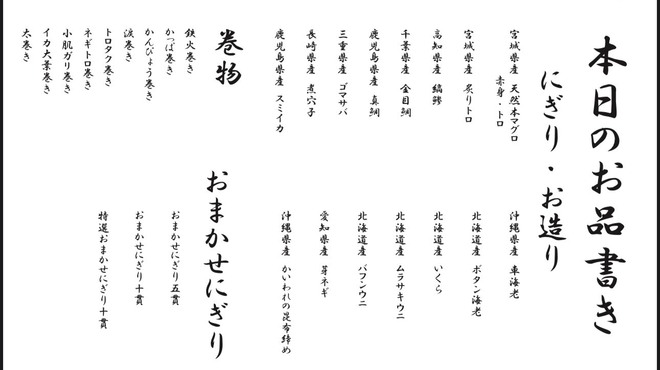 本日のお品書き
にぎり・お造り
宮城県産 天然本マグロ
赤身・トロ
宮城県産 炙りトロ
高知県産 縞鯵
千葉県産 金目鯛
鹿児島県産 真鯛
三重県産 ゴマサバ
長崎県産 煮穴子
鹿児島県産 スミイカ
沖縄県産 車海老
北海道産 ボタン海老
北海道産 いくら
北海道産 ムラサキウニ
北海道産 バフンウニ
愛知県産 芽ネギ
沖縄県産 かいわれの昆布締め
巻物
鉄火巻き
かっぱ巻き
かんぴょう巻き
涙巻き
トロタク巻き
ネギトロ巻き
小肌ガリ巻き
イカ大葉巻き
太巻き
おまかせにぎり
おまかせにぎり五貫
おまかせにぎり十貫
特選おまかせにぎり十貫